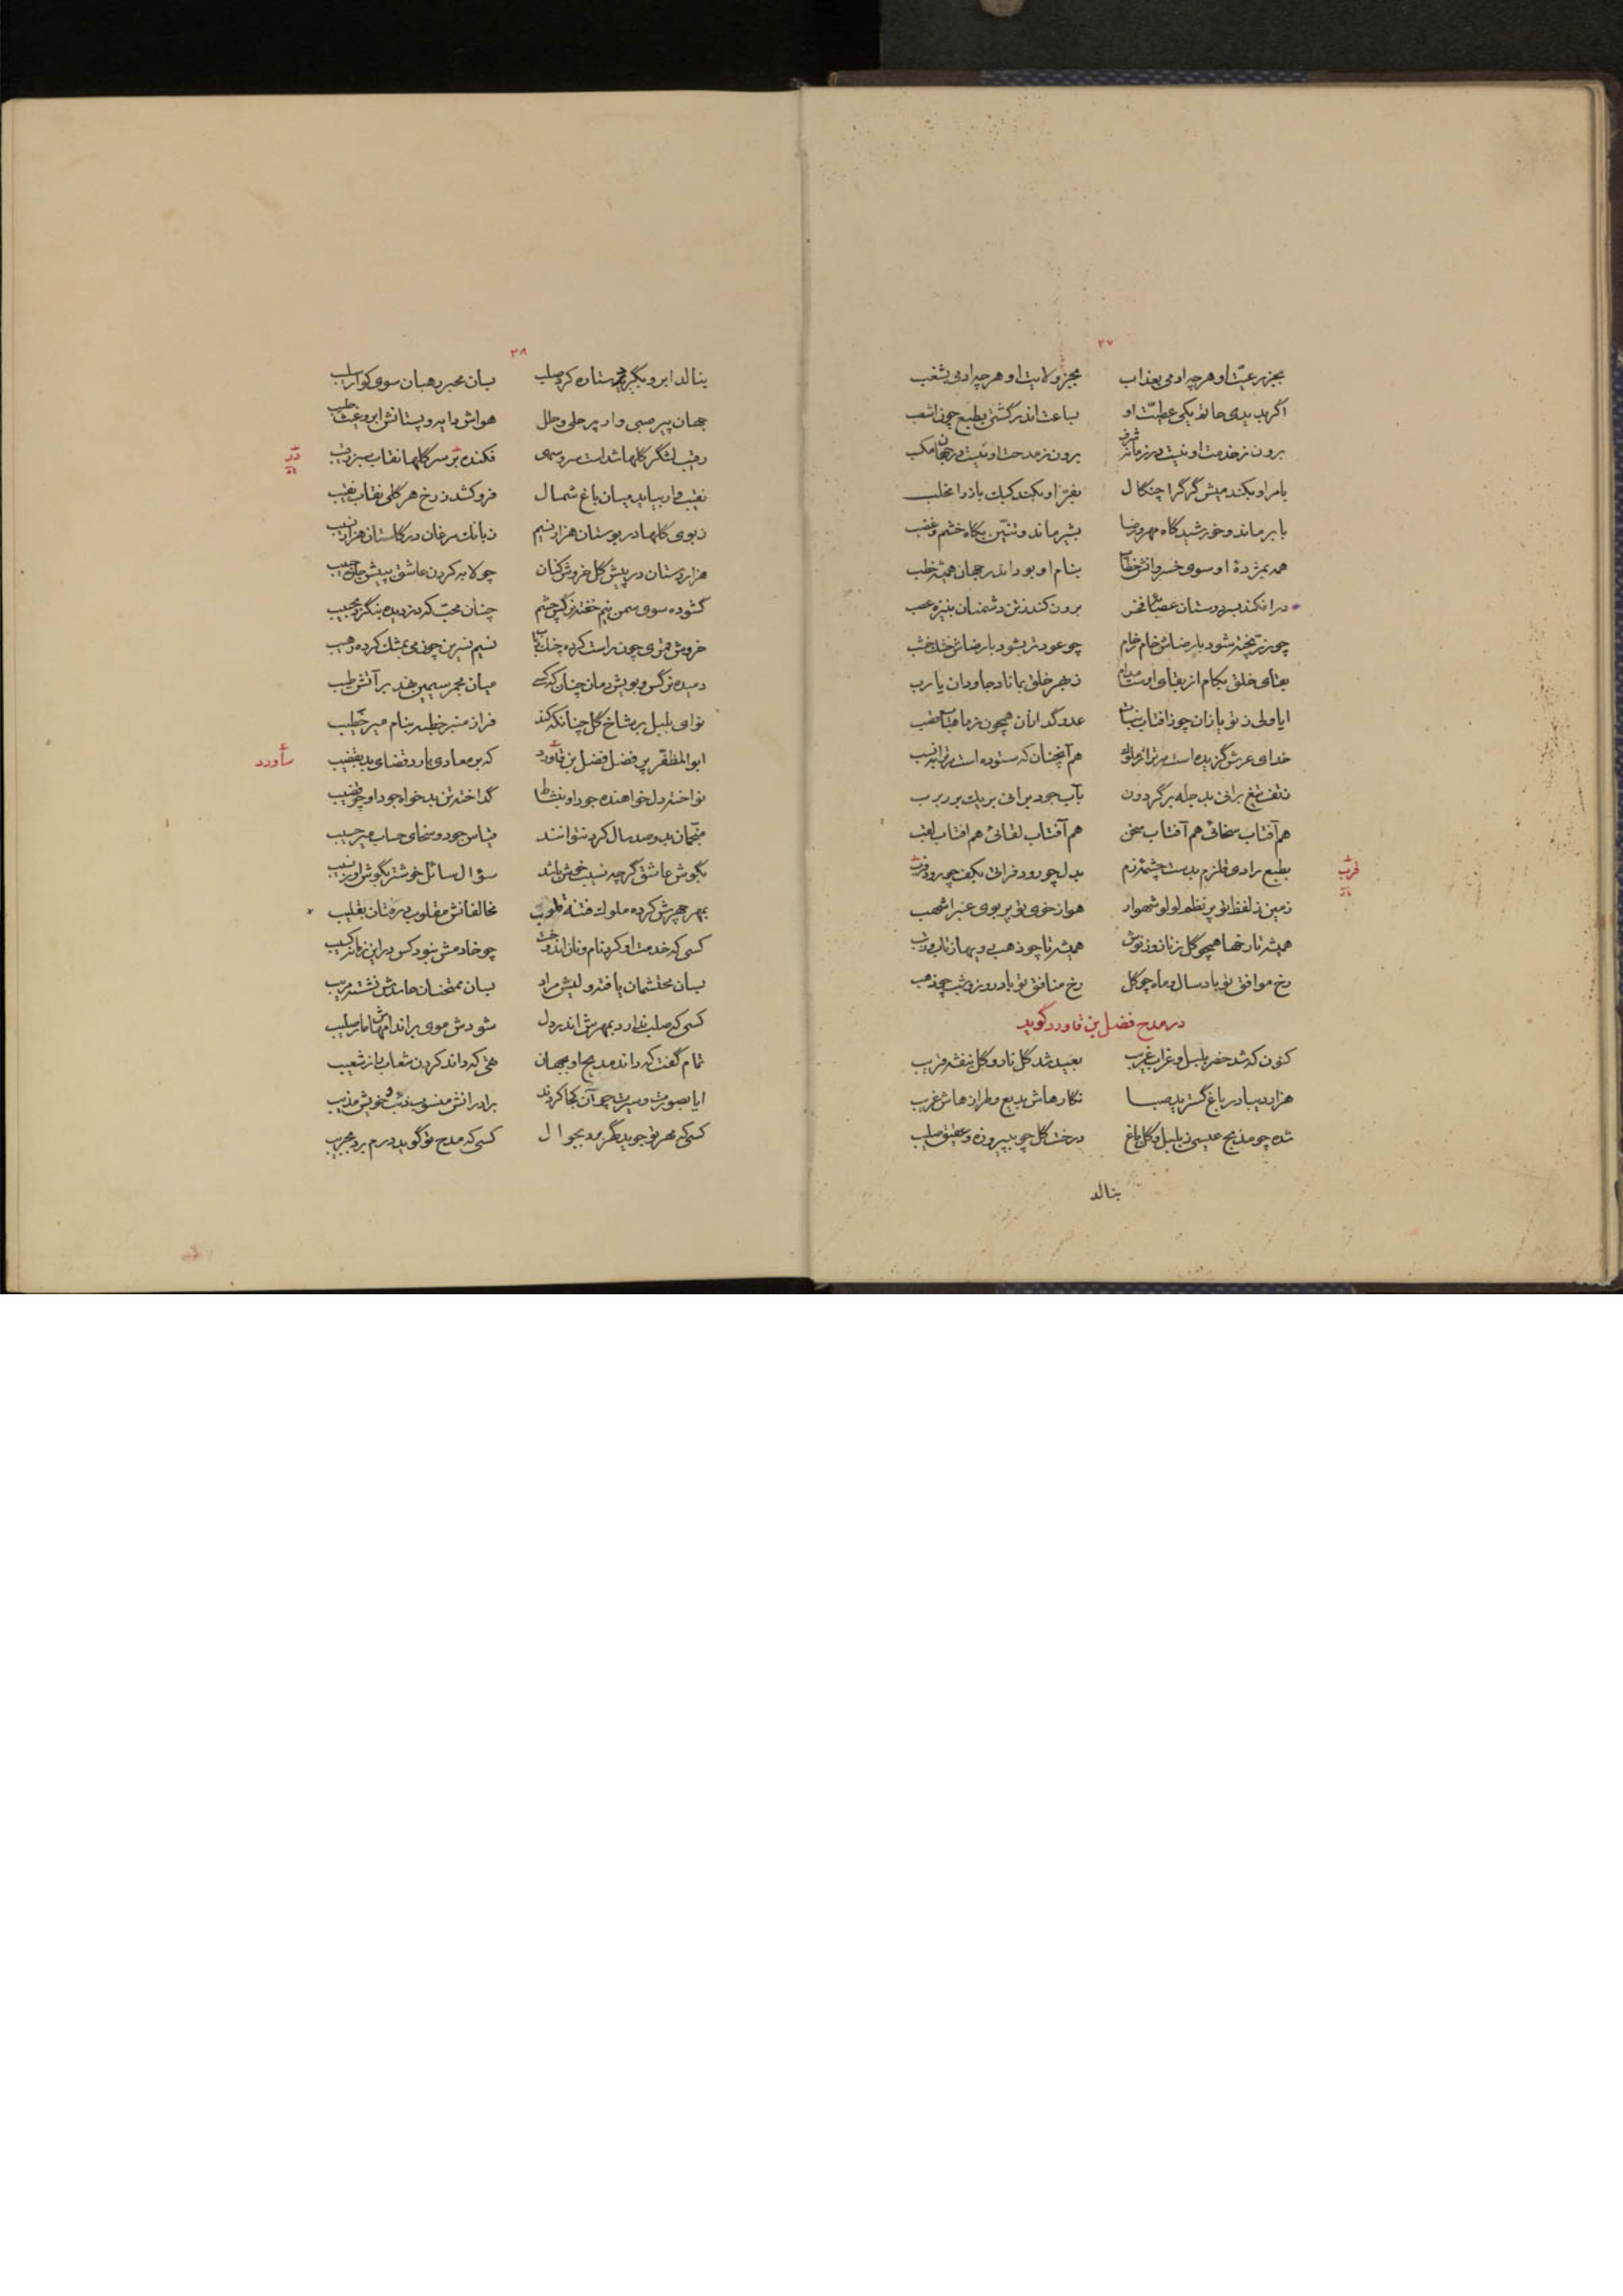 ۲۷
بجز رعیّت او هرچه ادمی بعذاب بجز ولایت او هرچه ادمی بشغب
اگر بدیدی حاتم یکی عطیّت او بساعت اندر گشتی بطبع چون اشعب
برون ز خدمت او نیست در زمانه شرف برون ز مدحت او نیست در جهان مکسب
بامر او بکند میش گرگ را چنگال بفرّ او بکند کبک باز را مخلب
بابر ماند و خورشید گاه مهر و رضا بشیر ماند و تنّین بگاه خشم و غضب
همه بمژدهٔ او سوی خسروانش خطاب بنام او بود اندر جهان همیشه خطب
در افکند بسر دوستان عصابهٔ فخر برون کند ز تن دشمنان بنیزه عصب
چو زر پخته شود با رضاش خام خام چو عود تر بشود با رضاش خشک خشب
بقای خلق بکام از بقای اوست مدام ز بهر خلق بماناد جاودان یا رب
ایا ولی ز تو یازان چو ز افتاب نبات عدو گدازان همچون ز ماهتاب قصب
خدای عرش گزیده است مر ترا ز ملوک هم آنچنان که ستوده است مر ترا بنسب
بتف تیغ برانی بدجله بر گردون بآب جود برانی بریگ بر زبزب
هم آفتاب سخائی هم آفتاب سخن هم آفتاب لقائی هم افتاب لقب
بطبع رادی قلزم بدست چشمهٔ زم بدل چو رود فراتی بکف چو رود قرب
قرب
زمین ز لفظ تو پر نظم لولو شهوار هوا ز خوی تو پر بوی عنبر اشهب
همیشه تا رخها همچو گل ز ناز و ز نوش همیشه تا چو ذهب روبها ز تاب و ز تب
رخ موافق تو باد سال و ماه چو گل رخ منافق تو باد روز و شب چو ذهب
در مدح فضل بن قاورد گوید
کنون که شد حضر بلبل و غراب غریب بعید شد گل نار و گل بنفشه قریب
هزار دیبا در باغ گسترید صبا نگارهاش بدیع و طرازهاش غریب
شده چو مذبح عیسی ز بلبل و گل باغ درخت گل چو ز پیروزه و عقیق صلیب
بنالد
۲۸
بنالد ابر و بگرید ستاره کرد صلب بسان محبر رهبان سوی کواز سلیب
جهان پیر صبی وار پر حلی و حلل هواش دایه و پستانش ابر و غیث حلیب
رقیب لشگر گلها شدست سرو سهی فکنده بر سر گلها نقاب سبز رقیب
نقیب وار بیاید میان باغ شمال فرو کشد ز رخ هر گلی نقاب نقیب
ز بوی گلها در بوستان هزار نسیم ز بانک مرغان در گلستان هزار نسیب
هزار دستان در پیش گل خروش کنان چو لابه کردن عاشق بپیش جای حبیب
گشوده سوی سمن نیم خفته نرگس چشم چنان محبّ که دزدیده بنگرد بحبیب
خروش قمری چون راست کرده چنگ رباب نسیم نسرین چون می بمشک کرده وهیب
دمیده نرگس و بویش دمان چنان که کسی میان مجمر سیمین نهد بر آتش طیب
نوای بلبل بر شاخ گل چنانکه کند فراز منبر خطبه بنام میر خطیب
ابوالمظفّر پر فضل فضل بن قاورد که بر معادی بارد قضای بد بقضیب
ساورد
نواخته دل خواهنده جود او بنشاط گداخته تن بدخواه جود او چو قضیب
منجّمان بدو صد سال کرد نتوانند قیاس جود و سخای حساب میر حسیب
بگوش عاشق گرچه نسیب خوش باشد سؤال سائل خوشتر بگوش او ز نسیب
بمهر چهرش کرده ملوک فتنه قلوب مخالفانش مقلوب در میان بقلیب
کسی که خدمت او کرد نام و نان اندوخت چو خادمش نبود کس در این زمانه کسیب
بسان محتشمان یافته ولیش مراد بسان ممتحنان حاسدش نشسته مریب
کسی که صلب ندارد بمهرش اندر دل شود ش موی بر اندامهاش مار صلیب
تمام گفت که داند مدیح او بجهان همی که داند کردن شعاب باز شعیب
ایا بصورت و سیرت چو آن کجا کردند برادرانش منسوب ذئب و خویش مذیب
کسی که مهر تو جوید بگرز مدبجوال کسی که مدح تو گوید درم برد بجریب